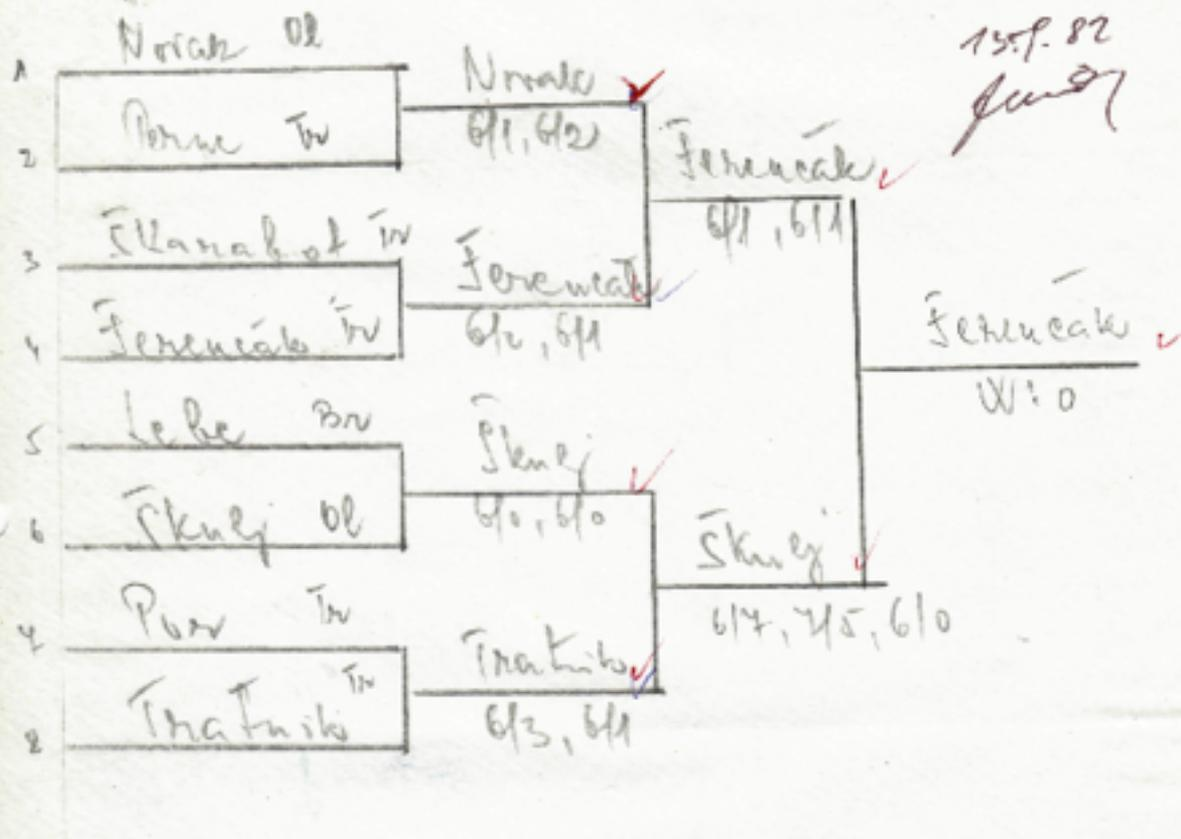 13.9.82
1 Novak Ol
2 Perne Tr
3 Škarabot Tr
4 Ferenčák Tr
5 Lebe Br
6 Škulj Ol
7 Por Tr
8 Tratnik Tr
Novak
6/1, 6/2
Ferenčak
6/2, 6/1
Škulj
6/0, 6/0
Tratnik
6/3, 6/1
Ferenčak
6/1, 6/1
Škulj
6/7, 7/5, 6/0
Ferenčák
W:0